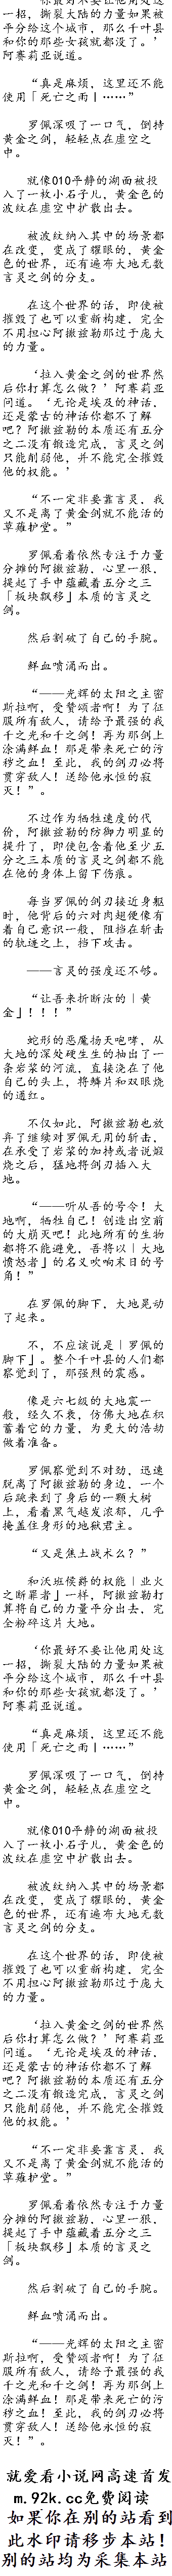 ‘你最好不要让他用处这
一招，撕裂大陆的力量如果被
平分给这个城市，那么千叶县
和你的那些女孩就都没了。’
阿赛莉亚说道。
“真是麻烦，这里还不能
使用「死亡之雨丨……”
罗佩深吸了一口气，倒持
黄金之剑，轻轻点在虚空之
中。
就像010平静的湖面被投
入了一枚小石子儿，黄金色的
波纹在虚空中扩散出去。
被波纹纳入其中的场景都
在改变，变成了耀眼的，黄金
色的世界，还有遍布大地无数
言灵之剑的分支。
在这个世界的话，即使被
摧毁了也可以重新构建，完全
不用担心阿撒兹勒那过于庞大
的力量。
‘拉入黄金之剑的世界然
后你打算怎么做？’阿赛莉亚
问道。‘无论是埃及的神话，
还是蒙古的神话你都不了解
吧？阿撒兹勒的本质还有五分
之二没有锻造完成，言灵之剑
只能削弱他，并不能完全摧毁
他的权能。’
“不一定非要靠言灵，我
又不是离了黄金剑就不能活的
草薙护堂。”
罗佩看着依然专注于力量
分摊的阿撒兹勒，心里一狠，
提起了手中蕴藏着五分之三
「板块飘移」本质的言灵之
剑。
然后割破了自己的手腕。
鲜血喷涌而出。
“——光辉的太阳之主密
斯拉啊，受赞颂者啊！为了征
服所有敌人，请给予最强的我
千之光和千之剑！再为那剑上
涂满鲜血！那是带来死亡的污
秽之血！至此，我的剑刃必将
贯穿敌人！送给他永恒的寂
灭！”。
不过作为牺牲速度的代
价，阿撒兹勒的防御力明显的
提升了，即使包含着他至少五
分之三本质的言灵之剑都不能
在他的身体上留下伤痕。
每当罗佩的剑刃接近身躯
时，他背后的六对肉翅便像有
着自己意识一般，阻挡在斩击
的轨迹之上，挡下攻击。
——言灵的强度还不够。
“让吾来折断汝的「黄
金」！！！”
蛇形的恶魔扬天咆哮，从
大地的深处硬生生的抽出了一
条岩浆的河流，直接浇在了他
自己的头上，将鳞片和双眼烧
的通红。
不仅如此，阿撒兹勒也放
弃了继续对罗佩无用的斩击，
在承受了岩浆的加持或者说煅
烧之后，猛地将剑刃插入大
地。
“——听从吾的号令！大
地啊，牺牲自己！创造出空前
的大崩灭吧！此地所有的生物
都将不能避免，吾将以「大地
愤怒者」的名义吹响末日的号
角！”
在罗佩的脚下，大地晃动
了起来。
不，不应该说是「罗佩的
脚下」。整个千叶县的人们都
察觉到了，那强烈的震感。
像是六七级的大地震一
般，经久不衰，仿佛大地在积
蓄着它的力量，为更大的浩劫
做着准备。
罗佩察觉到不对劲，迅速
脱离了阿撒兹勒的身边，一个
后跳来到了身后的一颗大树
上，看着黑气越发浓郁，几乎
掩盖住身形的地狱君主。
“又是焦土战术么？”
和沃班侯爵的权能「业火
之断罪者」一样，阿撒兹勒打
算将自己的力量平分出去，完
全粉碎这片大地。
‘你最好不要让他用处这
一招，撕裂大陆的力量如果被
平分给这个城市，那么千叶县
和你的那些女孩就都没了。’
阿赛莉亚说道。
“真是麻烦，这里还不能
使用「死亡之雨丨……”
罗佩深吸了一口气，倒持
黄金之剑，轻轻点在虚空之
中。
就像010平静的湖面被投
入了一枚小石子儿，黄金色的
波纹在虚空中扩散出去。
被波纹纳入其中的场景都
在改变，变成了耀眼的，黄金
色的世界，还有遍布大地无数
言灵之剑的分支。
在这个世界的话，即使被
摧毁了也可以重新构建，完全
不用担心阿撒兹勒那过于庞大
的力量。
‘拉入黄金之剑的世界然
后你打算怎么做？’阿赛莉亚
问道。‘无论是埃及的神话，
还是蒙古的神话你都不了解
吧？阿撒兹勒的本质还有五分
之二没有锻造完成，言灵之剑
只能削弱他，并不能完全摧毁
他的权能。’
“不一定非要靠言灵，我
又不是离了黄金剑就不能活的
草薙护堂。”
罗佩看着依然专注于力量
分摊的阿撒兹勒，心里一狠，
提起了手中蕴藏着五分之三
「板块飘移」本质的言灵之
剑。
然后割破了自己的手腕。
鲜血喷涌而出。
“——光辉的太阳之主密
斯拉啊，受赞颂者啊！为了征
服所有敌人，请给予最强的我
千之光和千之剑！再为那剑上
涂满鲜血！那是带来死亡的污
秽之血！至此，我的剑刃必将
贯穿敌人！送给他永恒的寂
灭！”。
就爱看小说网高速首发
m.92k.cc免费阅读
如果你在别的站看到
此水印请移步本站！
别的站均为采集本站